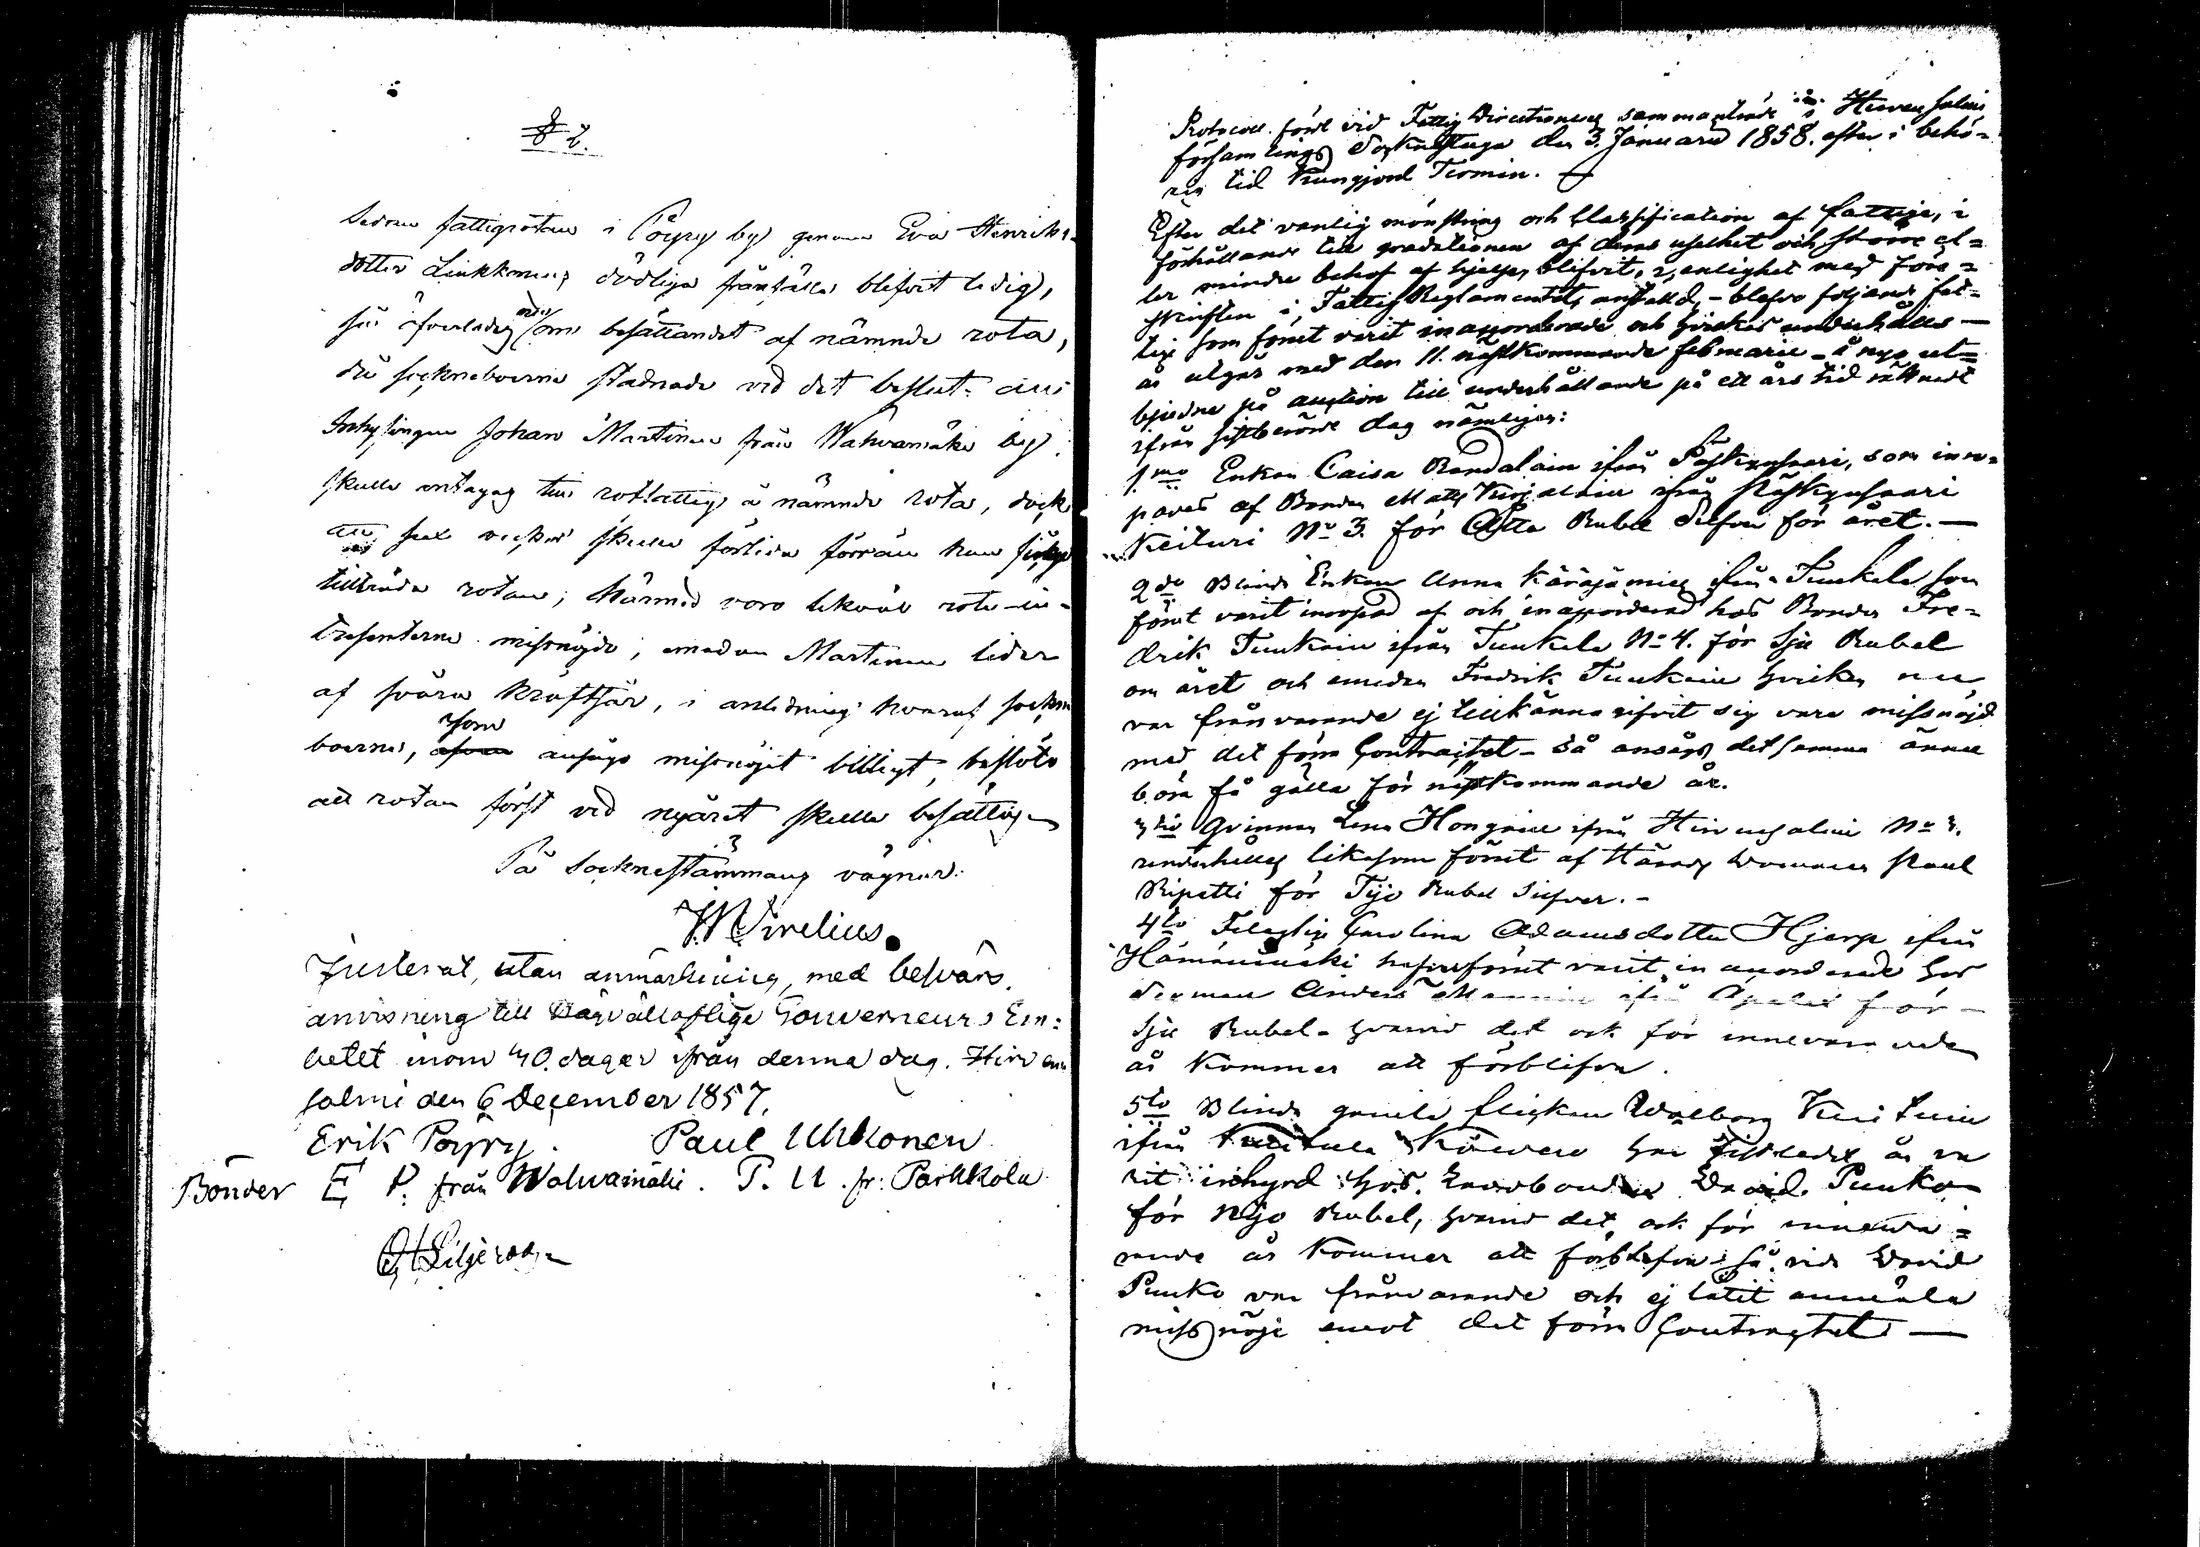 § 2.
Sedan fattigrotan i Pöyry by genom Eva Henriks-
dotter Linkkonens dödliga frånfälle blifvit ledig,
så öfverlades om besättandet af nämnde rota,
då sockneboerne stadnade vid det beslut: att
Inhysingen Johan Martinen från Walvamäki by
skulle antagas till rotfattig å nämnde rota, dock
att sex veckor skulle förlida förrän han finge
tillträda rotan; härmed voro likväl rote-in-
tressenterne missnöjde, emedan Martinen lider
af svåra kräftsår, i anledning hvaraf sockne
boerne, som ansågo missnöjet billigt, beslöto
att rotan först vid nyåret skulle besättas
På Sockne stämmans vägnar:
Wirelius
Justerat, utan anmärkning, med besvärs
anvisning till Högvällofliga Gouverneurs Em-
betet inom 40 dagar ifrån denna dag. Hirven
salmi den 6 December 1857.
Erik Pöyry. Paul Uhkonen
Bönder E P. från Walvamäki. P. U. fr: Parkkola
Protocoll fördt vid Fattig Directionens sammanträde i Hirvensalmi
församlings Sockenstuga den 3. Januarii 1858. efter i behö-
rig tid kungjord Termin.
Efter det vanlig mönstring och Classification af fattige, i
förhållande till gradationen af deras uselhet och större el-
ler mindre behof af hjelp, blifvit, i enlighet med före-
skriften i Fattig Reglamentet, anstäld, - blefvo följande fat-
tige som förut varit inaccorderade och hvilkas underhålls-
år utgår med den 11. nästkommande februarii - å nyo ut-
bjudne på auction till underhållande på ett års tid räknadt
ifrån sistberörde dag nämligen:
1mo Enkan Caisa Randalain ifrån Pöskynsaari, som inro-
pades af Bonden Matts Kirjalain ifrån Pöskynsaari
Keituri No 3. för Åtta Rubel Silfver för året. —
2do Blinda Enkan Anna Käräjämies ifrån Tuukala som
förut varit inropad af och inaccorderad hos Bonden Fre-
drik Tuukain ifrån Tuukala No 4. för Sju Rubel
om året och emedan Fredrik Tuukain hvilken nu
var frånvarande ej tillkänna gifvit sig vara missnöjd
med det förra Contractet - så ansågs det samma ännu
böra få gälla för nästkommande år.
3tio Qvinnan Lena Hongain ifrån Hirvensalmi No 3.
underhålles likasom förut af Härads Domaren Paul
Ripatti för Tijo Rubel Silfver. -
4to Carolina Adamsdotter Hjerp ifrån
förut varit in accorderad hos
Anders ifrån för
Sju Rubel - hvarvid det ock för innevarande
år kommer att förblifva.
5to Blinda gamla flickan Walborg
ifrån har sistledet år va
rit inhyrd hos Bonden David Puuko
för Nijo Rubel, hvarvid det ock för inneva-
rande år kommer att förblifva, så vida David
Puuko var frånvarande och ej låtit anmäla
missnöje emot det förra Contractet —